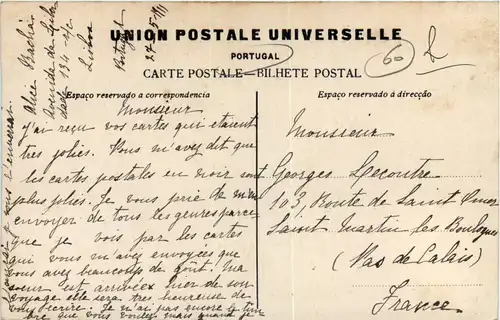 UNION POSTALE UNIVERSELLE
PORTUGAL
CARTE POSTALE - BILHETE POSTAL
60
Espaço reservado a correspondencia
Espaço reservado á direcção
Alice
Avenida da
134
Lisboa
Portugal
27-5-
Monsieur
j'ai reçu vos cartes qui étaient
tres jolies. Vous m'avez dit que
les cartes postales en noir sont
plus jolies. Je vous prie de m'en
envoyer de tous les genres parce
que je vois par les cartes
qui vous m'avez envoyées que
vous avez beaucoup de goût. Ma
sœur est arrivée hier de son
voyage elle sera tres heureuse de
vous écrire. Je n'ai pas encore
que vous voulez mais quand je
Monsieur
Georges Lecontre
103, Route de Saint Omer
Saint Martin les Boulogne
(Pas de Calais)
France